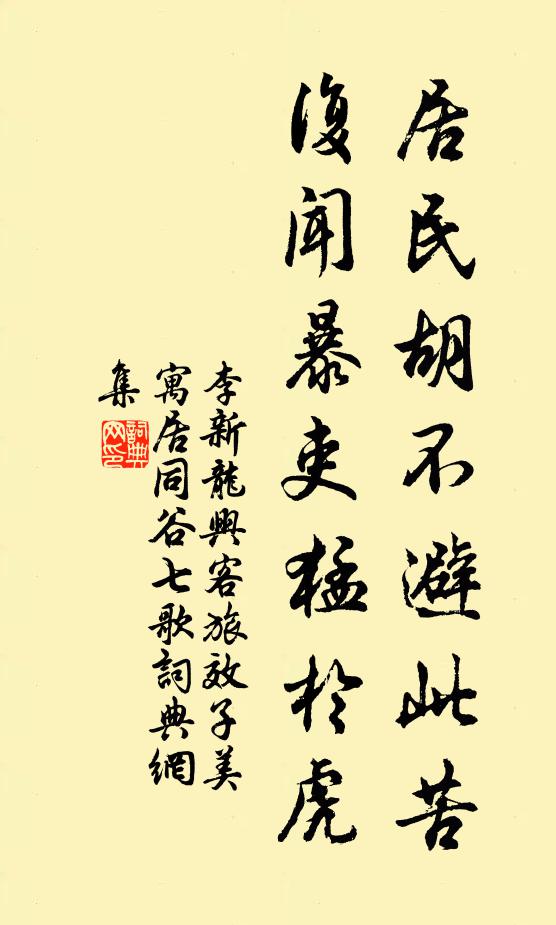 居民胡不避此苦
復聞暴吏猛於虎
李新龍興客旅效子美
寓居同谷七歌詞典網
集
詞典網印